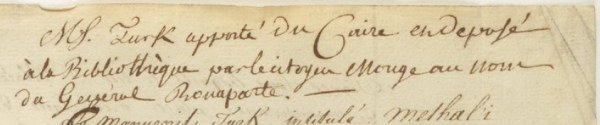 Ms. Turk apporté du Caire et deposé
à la Bibliothèque par le citoyen Monge au nom
du General Bonaparte. —
Manuscrit Turk intitulé Methali